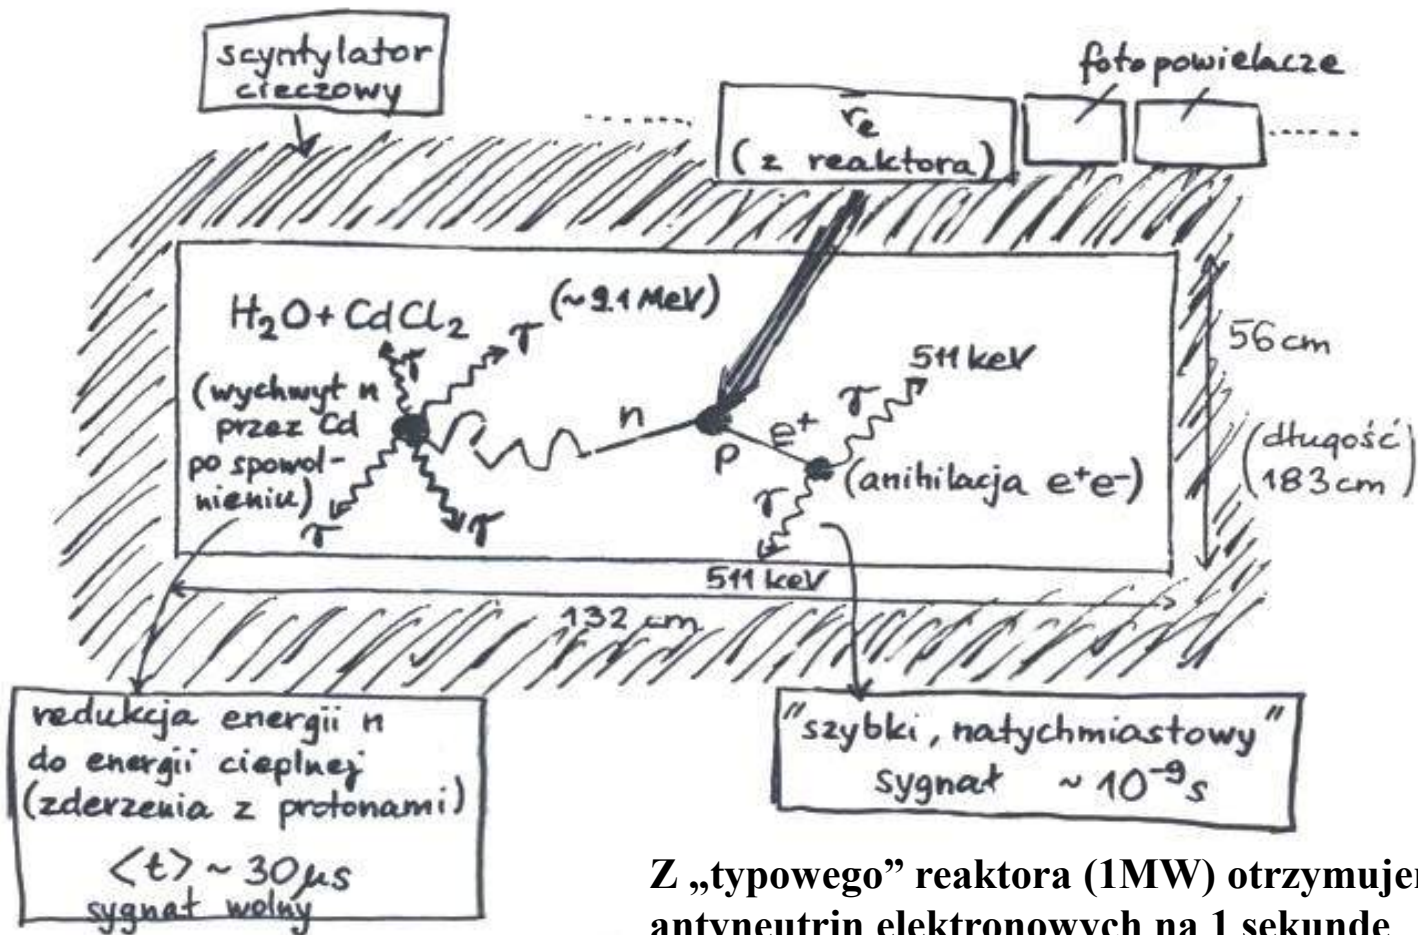 scyntylator
cieczowy
fotopowielacze
ν̅e
(z reaktora)
H2O + CdCl2
γ
γ
(~9.1 MeV)
(wychwyt n
przez Cd
po spowol-
nieniu)
γ
γ
n
p
e+
γ
511 keV
(anihilacja e+e-)
γ
511 keV
56 cm
(długość
183 cm)
132 cm
redukcja energii n
do energii cieplnej
(zderzenia z protonami)
<t> ~ 30 μs
sygnał wolny
"szybki, natychmiastowy"
sygnał ~ 10⁻⁹ s
Z „typowego” reaktora (1MW) otrzymujem
antyneutrin elektronowych na 1 sekundę